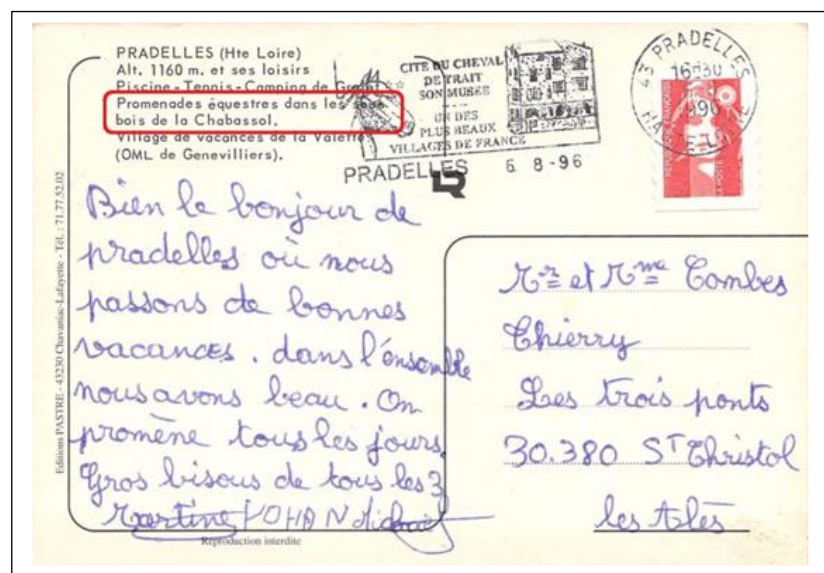 PRADELLES (Hte Loire)
Alt. 1160 m. et ses loisirs
Piscine - Tennis - Camping de
Promenades équestres dans les sous
bois de la Chabassol.
Village de vacances de la Valette
(OML de Genevilliers).
CITE DU CHEVAL
DE TRAIT
SON MUSÉE
UN DES
PLUS BEAUX
VILLAGES DE FRANCE
PRADELLES 6 8 -96
43 PRADELLES
16H30
HAUTE-LOIRE
REPUBLIQUE FRANÇAISE
LA POSTE
Bien le bonjour de
pradelles où nous
passons de bonnes
vacances. dans l'énsemble
nous avons beau. On
promène tous les jours.
Gros bisous de tous les 3
Martine YOHAN
Mr et Mme Combes
Thierry
Les trois ponts
30.380 ST Christol
les Alès
Editions PASTRE - 43230 Chavaniac-Lafayette - Tél. : 71.77.52.02
Reproduction interdite